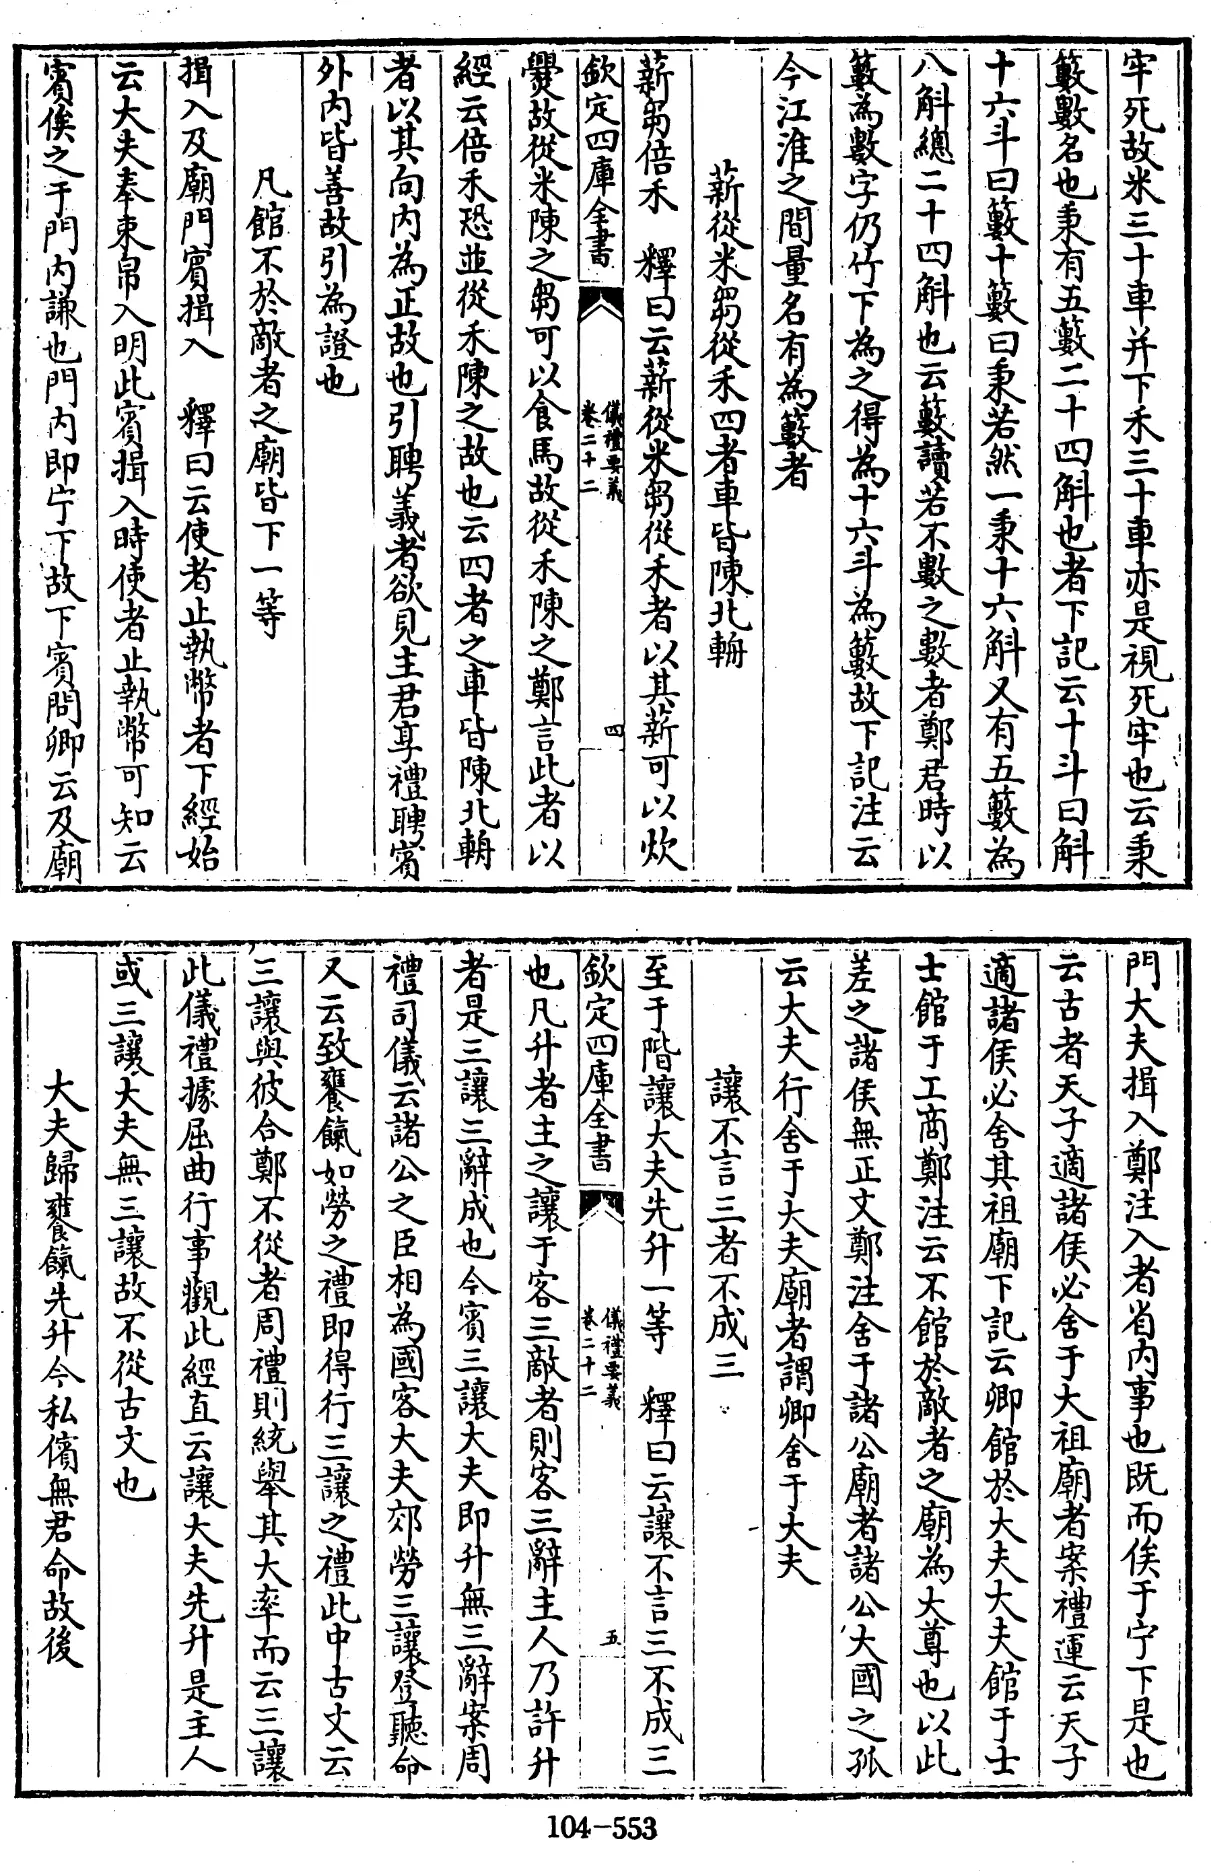 牢死故米三十車并下禾三十車亦是視死牢也云秉
籔數名也秉有五籔二十四斛也者下記云十斗曰斛
十六斗曰籔十籔曰秉若然一秉十六斛又有五籔為
八斛總二十四斛也云籔讀若不數之數者鄭君時以
籔為數字仍竹下為之得為十六斗為籔故下記注云
今江淮之間量名有為籔者
薪從米芻從禾四者車皆陳北輈
薪芻倍禾 釋曰云薪從米芻從禾者以其薪可以炊
欽定四庫全書
儀禮要義
卷二十二
四
爨故從米陳之芻可以食馬故從禾陳之鄭言此者以
經云倍禾恐並從禾陳之故也云四者之車皆陳北輈
者以其向內為正故也引聘義者欲見主君享禮聘賓
外內皆善故引為證也
凡館不於敵者之廟皆下一等
揖入及廟門賓揖入 釋曰云使者止執幣者下經始
云大夫奉束帛入明此賓揖入時使者止執幣可知云
賓俟之于門內謙也門內即宁下故下賓問卿云及廟
門大夫揖入鄭注入者省內事也既而俟于宁下是也
云古者天子適諸侯必舍于大祖廟者案禮運云天子
適諸侯必舍其祖廟下記云卿館於大夫大夫館于士
士館于工商鄭注云不館於敵者之廟為大尊也以此
差之諸侯無正文鄭注舍于諸公廟者諸公大國之孤
云大夫行舍于大夫廟者謂卿舍于大夫
讓不言三者不成三
至于階讓大夫先升一等 釋曰云讓不言三不成三
欽定四庫全書
儀禮要義
卷二十二
五
也凡升者主之讓于客三敵者則客三辭主人乃許升
者是三讓三辭成也今賓三讓大夫即升無三辭案周
禮司儀云諸公之臣相為國客大夫郊勞三讓登聽命
又云致饔餼如勞之禮即得行三讓之禮此中古文云
三讓與彼合鄭不從者周禮則統舉其大率而云三讓
此儀禮據屈曲行事觀此經直云讓大夫先升是主人
或三讓大夫無三讓故不從古文也
大夫歸饔餼先升今私儐無君命故後
104-553